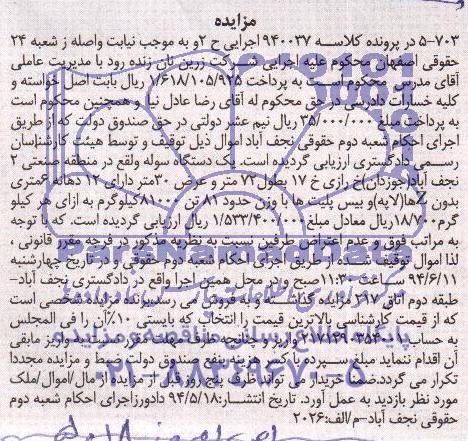 مزایده
۵-۷۰۳ در پرونده کلاسه ۹۴۰۰۳۷ اجرایی ح ۲ و به موجب نیابت واصله ز شعبه ۲۴
حقوقی اصفهان محکوم علیه اجرایی شرکت زرین نان زنده رود با مدیریت عاملی
آقای مدرس محکوم است به پرداخت ۱/۶۱۸/۱۰۵/۹۲۵ ریال بابت اصل خواسته و
کلیه خسارات دادرسی در حق محکوم له آقای رضا عادل نیا و همچنین محکوم است
به پرداخت مبلغ ۳۵/۰۰۰/۰۰۰ ریال نیم عشر دولتی در حق صندوق دولت که از طریق
اجرای احکام شعبه دوم حقوقی نجف آباد اموال ذیل توقیف و توسط هیئت کارشناسان
رسمی دادگستری ارزیابی گردیده است. یک دستگاه سوله ولقع در منطقه صنعتی ۲
نجف آباد(جوزدان)خ رازی خ ۱۷ بطول ۷۲ متر و عرض ۳۰متر دارای ۱۲ دهانه ۶متری
بدون Zها(لاپه)و بیس پلیت ها با وزن حدود ۸۱ تن ۸۱۰۰۰کیلوگرم به ازای هر کیلو
گرم۱۸/۷۰۰ریال معادل مبلغ ۱/۵۳۳/۴۰۰/۰۰۰ ریال ارزیابی گردیده است. که با توجه
به مراتب فوق و عدم اعتراض طرفین نسبت به نظریه مذکور در فرجه مقرر قانونی ،
لذا اموال توقیف شده از طریق اجرای احکام شعبه دوم حقوقی و در تاریخ چهارشنبه
۹۴/۶/۱۱ ساعت ۱۱:۳۰صبح و در محل همین اجرا واقع در دادگستری نجف آباد-
طبقه دوم اتاق ۲۱۷ مزایده گذاشته و به فروش می رسدبرانده مزایده شخصی است
که از قیمت کارشناسی بالاترین قیمت را انتخاب که بایستی ۱۰٪آن را فی المجلس
به حساب واریز و چنانچه ظرف مهلت مقرر نسبت به واریز مابقی
آن اقدام ننماید مبلغ سپرده با کسر هزینه بنفع صندوق دولت ضبط و مزایده مجددا
تکرار می گردد.ضمنا خریدار می تواند ظرف پنج روز قبل از مزایده از مال/اموال/ملک
مورد نظر بازدید به عمل آورد. تاریخ انتشار:۹۴/۵/۱۸ دادورزاجرای احکام شعبه دوم
حقوقی نجف آباد-م/الف:۲۰۲۶
ParsNamadData
پایگاه اطلاع رسانی مناقصه و مزایده
۰۲۱-۸۸۳۴۹۶۷۰-۵